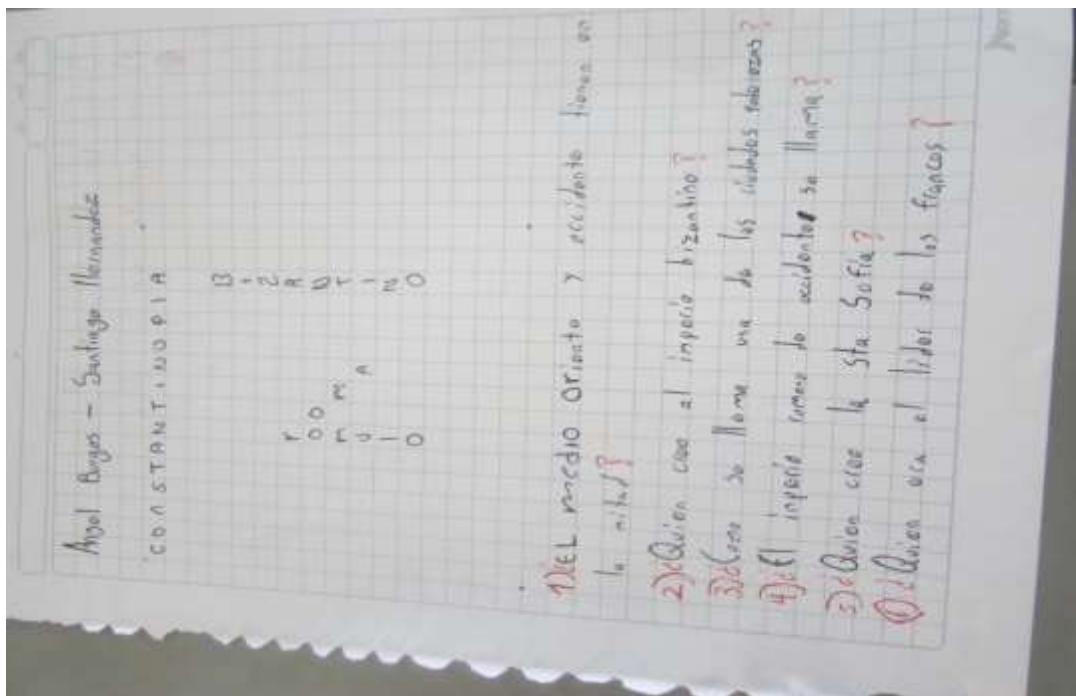 Angel Burgos - Santiago Hernandez
CONSTANTINOPLA
B
I
Z
r A
O O N
m m T
U A I
l N
O O
1)¿EL medio oriente y occidente tienen en
la mitad?
2)¿Quien creo el imperio bizantino?
3)¿Como se llama una de las ciudades poderozas?
4)¿El imperio romano de occidente se llama?
5)¿Quien creo la Sta. Sofia?
6)¿Quien era el lider de los francos?